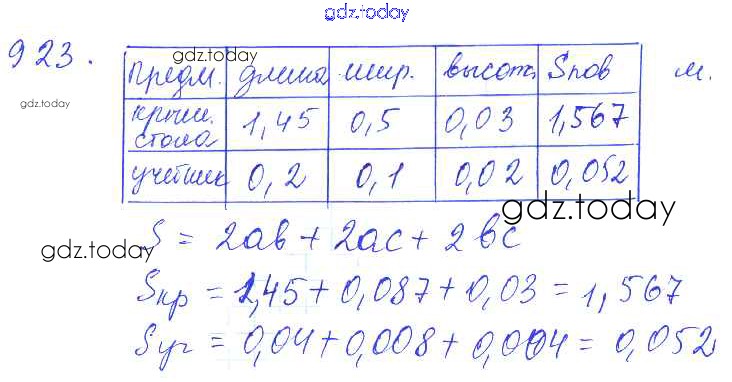 gdz.today
923.
Предм. длина шир. высота Sпов м.
gdz.today
gdz.today
крыш. стола 1,45 0,5 0,03 1,567
учебник 0,2 0,1 0,02 0,052
gdz.today
gdz.today
S = 2ab + 2ac + 2bc
Sкр = 1,45 + 0,087 + 0,03 = 1,567
Sуч = 0,04 + 0,008 + 0,004 = 0,052
gdz.today